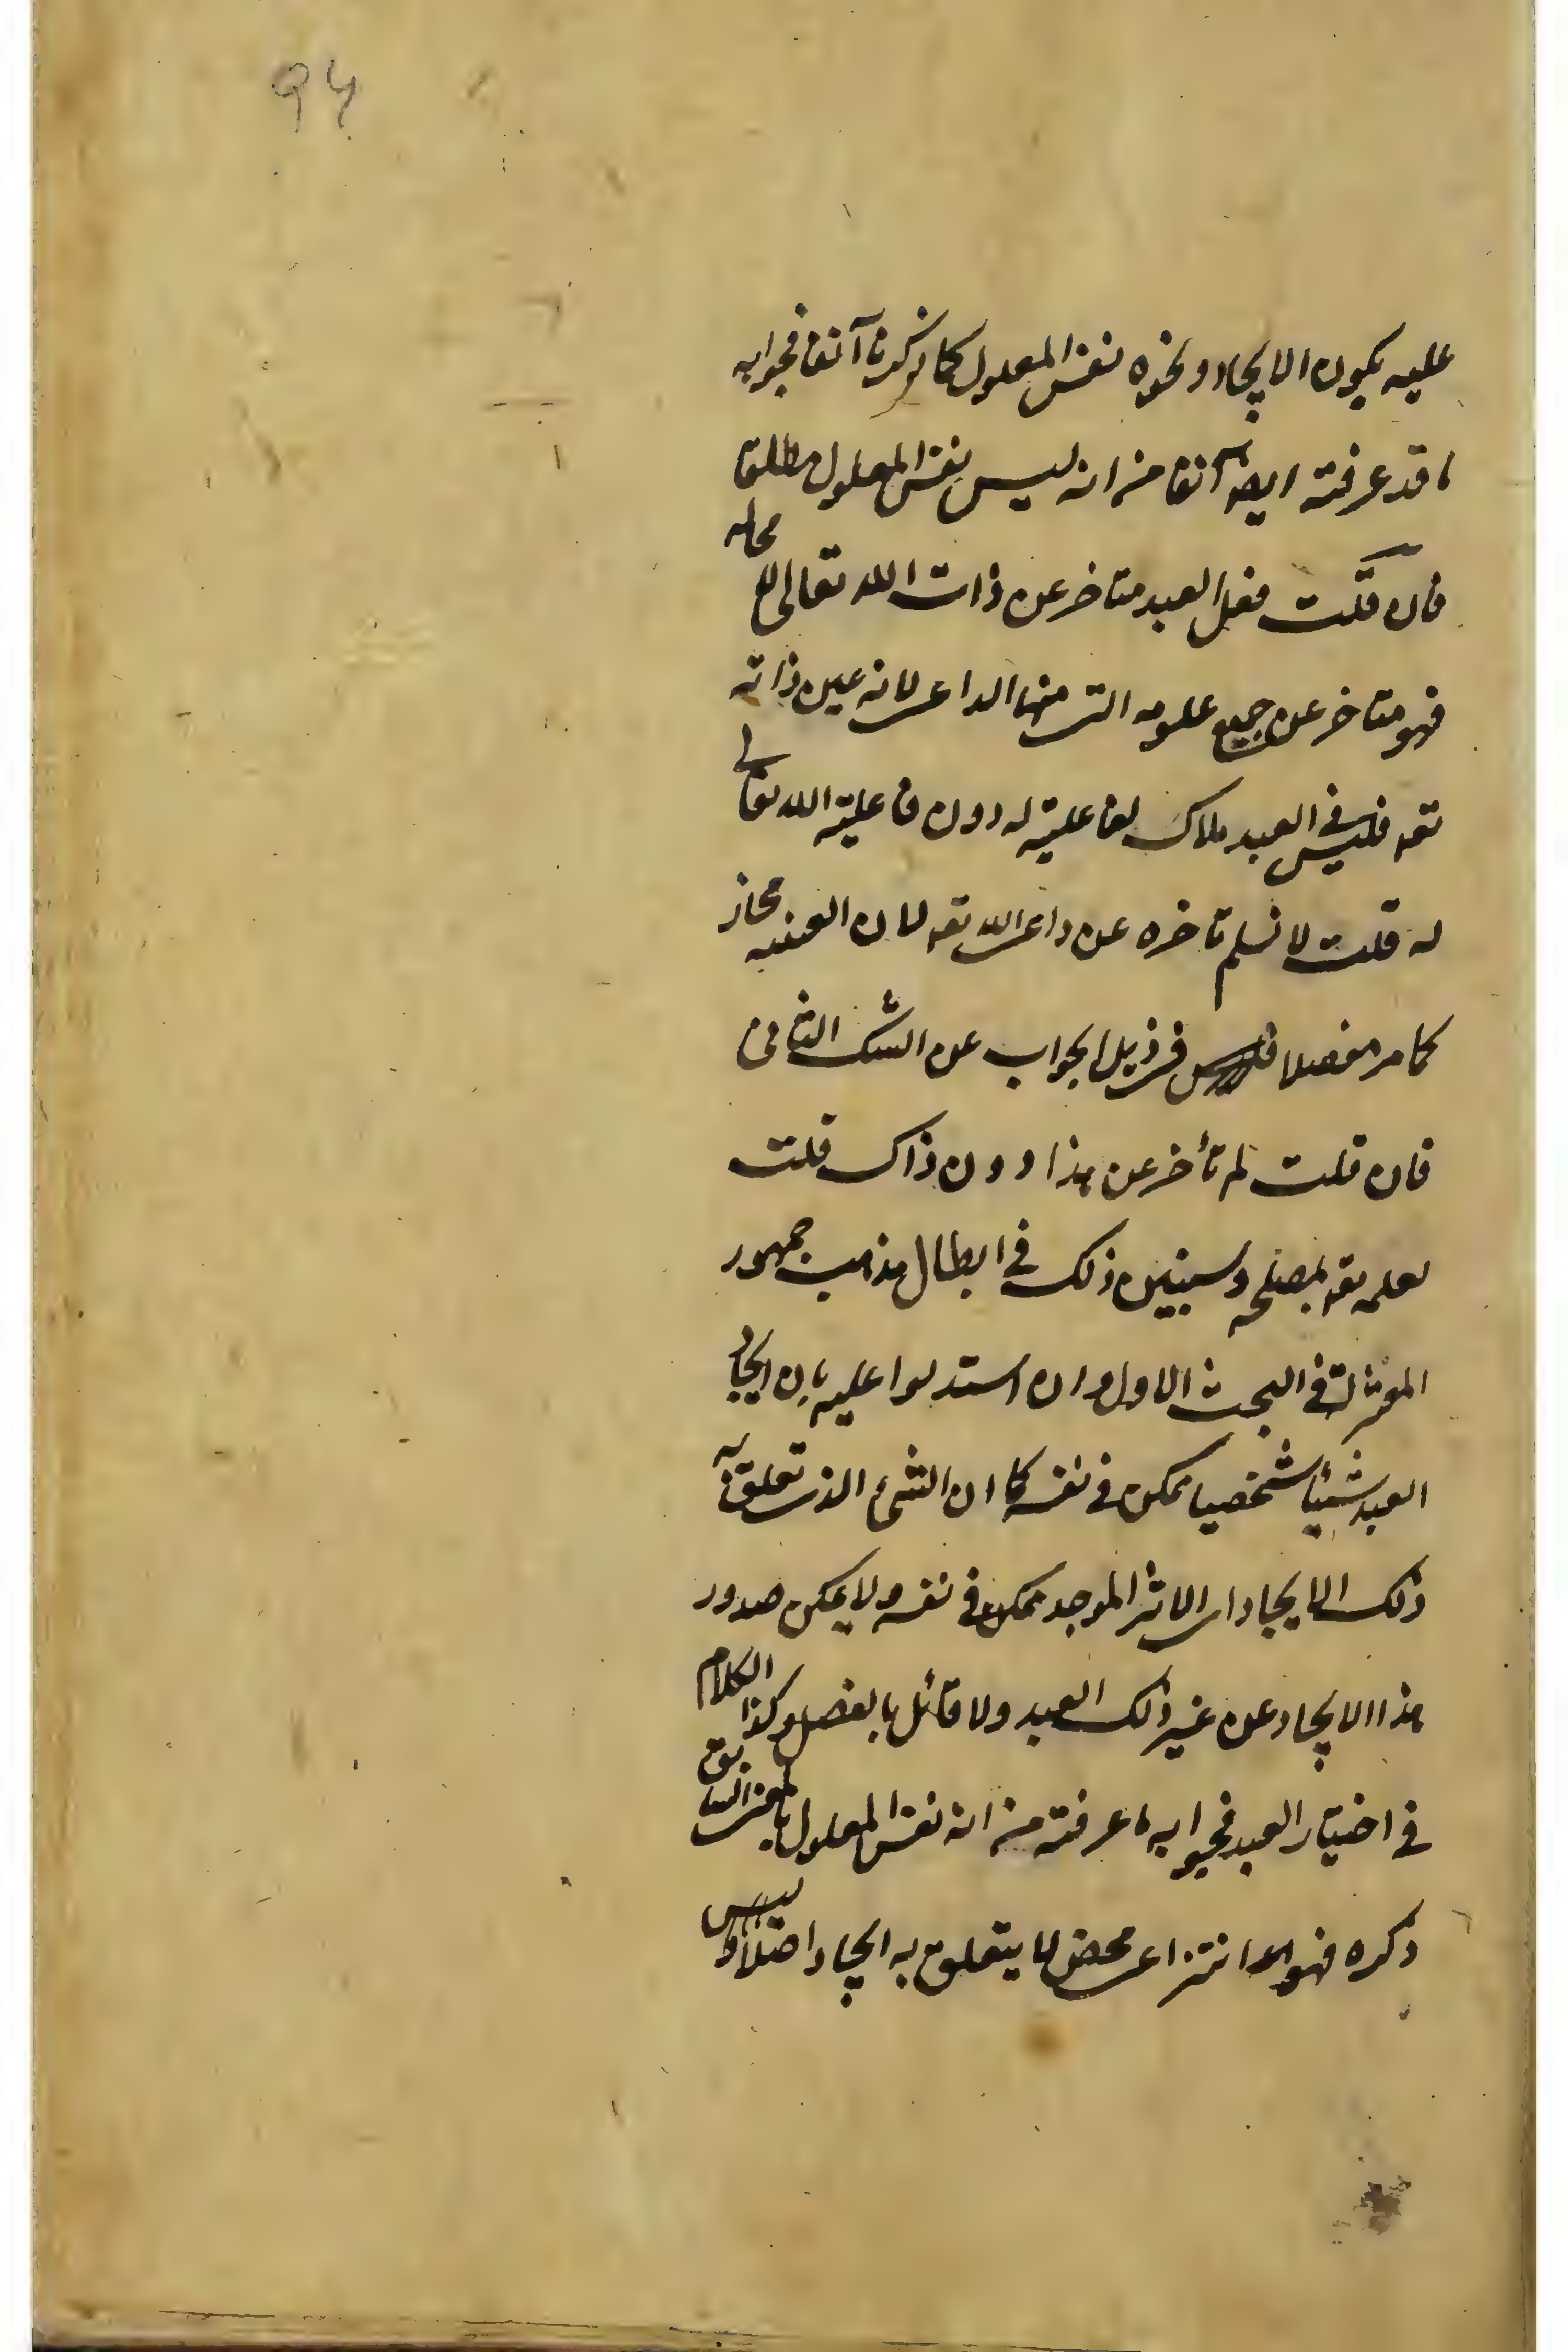 ۹۴
عليه بكون الايجاد ونحوه نفس المعلول كما ذكرنا آنفا فجوابه
ما قد عرفته ايضا آنفا من انه ليس نفس المعلول مطلقا
فان قلت فعل العبد متاخر عن ذات الله تعالى لا محالة
فهو متاخر عن جميع علومه التى منها الداعى لانه عين ذاته
تعه فليس فى العبد ملاك لفاعليته له دون فاعلية الله تعالى
له قلت لا نسلم تاخره عن داعى الله تعه لان العينية مجاز
كما مر مفصلا فى ذيل الجواب عن الشك الثانى
فان قلت لم تأخر عن هذا دون ذاك قلت
لعلمه تعه بمصلحة وسيتبين ذلك فى ابطال مذهب جمهور
المعتزلة فى البحث الاول وان استدلوا عليه بان ايجاد
العبد شيئا شخصيا ممكن فى نفسه كما ان الشئ الذى تعلق به
ذلك الايجاد اى الاثر الموجد ممكن فى نفسه ولا يمكن صدور
هذا الايجاد عن غير ذلك العبد ولا قائل بالفصل وكذا الكلام
فى اختيار العبد فجوابه ما عرفته من انه نفس المعلول بالمعنى السابق
ذكره فهو انتزاعى محض لا يتعلق به ايجاد اصلا وليس